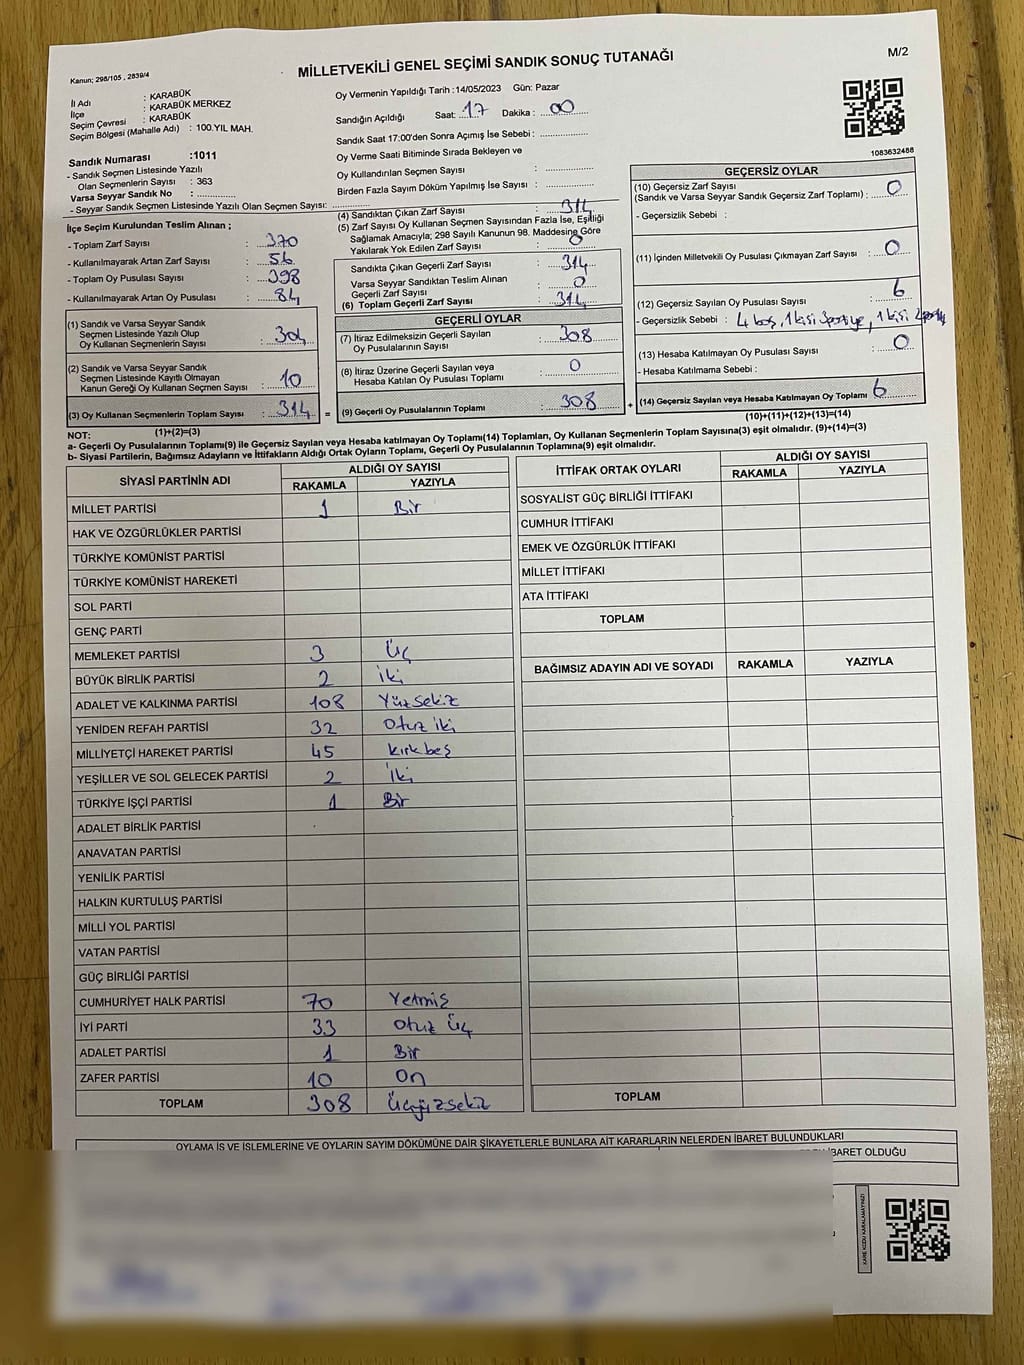 Kanun; 298/105 , 2839/4
MİLLETVEKİLİ GENEL SEÇİMİ SANDIK SONUÇ TUTANAĞI
M/2
İl Adı : KARABÜK
İlçe : KARABÜK MERKEZ
Seçim Çevresi : KARABÜK
Seçim Bölgesi (Mahalle Adı) : 100.YIL MAH.
Sandık Numarası :1011
- Sandık Seçmen Listesinde Yazılı
Olan Seçmenlerin Sayısı : 363
Varsa Seyyar Sandık No : ............
- Seyyar Sandık Seçmen Listesinde Yazılı Olan Seçmen Sayısı: ............
Oy Vermenin Yapıldığı Tarih :14/05/2023 Gün: Pazar
Sandığın Açıldığı Saat: 17 Dakika : 00
Sandık Saat 17:00'den Sonra Açımış İse Sebebi : ............
Oy Verme Saati Bitiminde Sırada Bekleyen ve
Oy Kullandırılan Seçmen Sayısı : ............
Birden Fazla Sayım Döküm Yapılmış İse Sayısı : ............
1083632488
İlçe Seçim Kurulundan Teslim Alınan ;
- Toplam Zarf Sayısı : 370
- Kullanılmayarak Artan Zarf Sayısı : 56
- Toplam Oy Pusulası Sayısı : 398
- Kullanılmayarak Artan Oy Pusulası : 84
(1) Sandık ve Varsa Seyyar Sandık
Seçmen Listesinde Yazılı Olup
Oy Kullanan Seçmenlerin Sayısı : 304
(2) Sandık ve Varsa Seyyar Sandık
Seçmen Listesinde Kayıtlı Olmayan
Kanun Gereği Oy Kullanan Seçmen Sayısı : 10
(3) Oy Kullanan Seçmenlerin Toplam Sayısı : 314 =
(1)+(2)=(3)
(4) Sandıktan Çıkan Zarf Sayısı : 314
(5) Zarf Sayısı Oy Kullanan Seçmen Sayısından Fazla İse, Eşitliği
Sağlamak Amacıyla; 298 Sayılı Kanunun 98. Maddesine Göre
Yakılarak Yok Edilen Zarf Sayısı : 0
Sandıkta Çıkan Geçerli Zarf Sayısı : 314
Varsa Seyyar Sandıktan Teslim Alınan
Geçerli Zarf Sayısı : 0
(6) Toplam Geçerli Zarf Sayısı : 314
GEÇERLİ OYLAR
(7) İtiraz Edilmeksizin Geçerli Sayılan
Oy Pusulalarının Sayısı : 308
(8) İtiraz Üzerine Geçerli Sayılan veya
Hesaba Katılan Oy Pusulası Toplamı : 0
(9) Geçerli Oy Pusulalarının Toplamı : 308 +
GEÇERSİZ OYLAR
(10) Geçersiz Zarf Sayısı
(Sandık ve Varsa Seyyar Sandık Geçersiz Zarf Toplamı) : 0
- Geçersizlik Sebebi :
(11) İçinden Milletvekili Oy Pusulası Çıkmayan Zarf Sayısı : 0
(12) Geçersiz Sayılan Oy Pusulası Sayısı : 6
- Geçersizlik Sebebi : 4 boş, 1 kişi 3 partiye, 1 kişi 2 partiye
(13) Hesaba Katılmayan Oy Pusulası Sayısı : 0
- Hesaba Katılmama Sebebi :
(14) Geçersiz Sayılan veya Hesaba Katılmayan Oy Toplamı 6
(10)+(11)+(12)+(13)=(14)
NOT:
a- Geçerli Oy Pusulalarının Toplamı(9) ile Geçersiz Sayılan veya Hesaba katılmayan Oy Toplamı(14) Toplamları, Oy Kullanan Seçmenlerin Toplam Sayısına(3) eşit olmalıdır. (9)+(14)=(3)
b- Siyasi Partilerin, Bağımsız Adayların ve İttifakların Aldığı Ortak Oyların Toplamı, Geçerli Oy Pusulalarının Toplamına(9) eşit olmalıdır.
SİYASİ PARTİNİN ADI ALDIĞI OY SAYISI
RAKAMLA YAZIYLA
MİLLET PARTİSİ 1 Bir
HAK VE ÖZGÜRLÜKLER PARTİSİ
TÜRKİYE KOMÜNİST PARTİSİ
TÜRKİYE KOMÜNİST HAREKETİ
SOL PARTİ
GENÇ PARTİ
MEMLEKET PARTİSİ 3 Üç
BÜYÜK BİRLİK PARTİSİ 2 iki
ADALET VE KALKINMA PARTİSİ 108 Yüzsekiz
YENİDEN REFAH PARTİSİ 32 Otuz iki
MİLLİYETÇİ HAREKET PARTİSİ 45 Kırk beş
YEŞİLLER VE SOL GELECEK PARTİSİ 2 İki
TÜRKİYE İŞÇİ PARTİSİ 1 Bir
ADALET BİRLİK PARTİSİ
ANAVATAN PARTİSİ
YENİLİK PARTİSİ
HALKIN KURTULUŞ PARTİSİ
MİLLİ YOL PARTİSİ
VATAN PARTİSİ
GÜÇ BİRLİĞİ PARTİSİ
CUMHURİYET HALK PARTİSİ 70 Yetmiş
İYİ PARTİ 33 Otuz Üç
ADALET PARTİSİ 1 Bir
ZAFER PARTİSİ 10 On
TOPLAM 308 Üçyüzsekiz
İTTİFAK ORTAK OYLARI ALDIĞI OY SAYISI
RAKAMLA YAZIYLA
SOSYALİST GÜÇ BİRLİĞİ İTTİFAKI
CUMHUR İTTİFAKI
EMEK VE ÖZGÜRLÜK İTTİFAKI
MİLLET İTTİFAKI
ATA İTTİFAKI
TOPLAM
BAĞIMSIZ ADAYIN ADI VE SOYADI RAKAMLA YAZIYLA
TOPLAM
OYLAMA İŞ VE İŞLEMLERİNE VE OYLARIN SAYIM DÖKÜMÜNE DAİR ŞİKAYETLERLE BUNLARA AİT KARARLARIN NELERDEN İBARET BULUNDUKLARI
İBARET OLDUĞU
KARE KODU KARALAMAYINIZ!